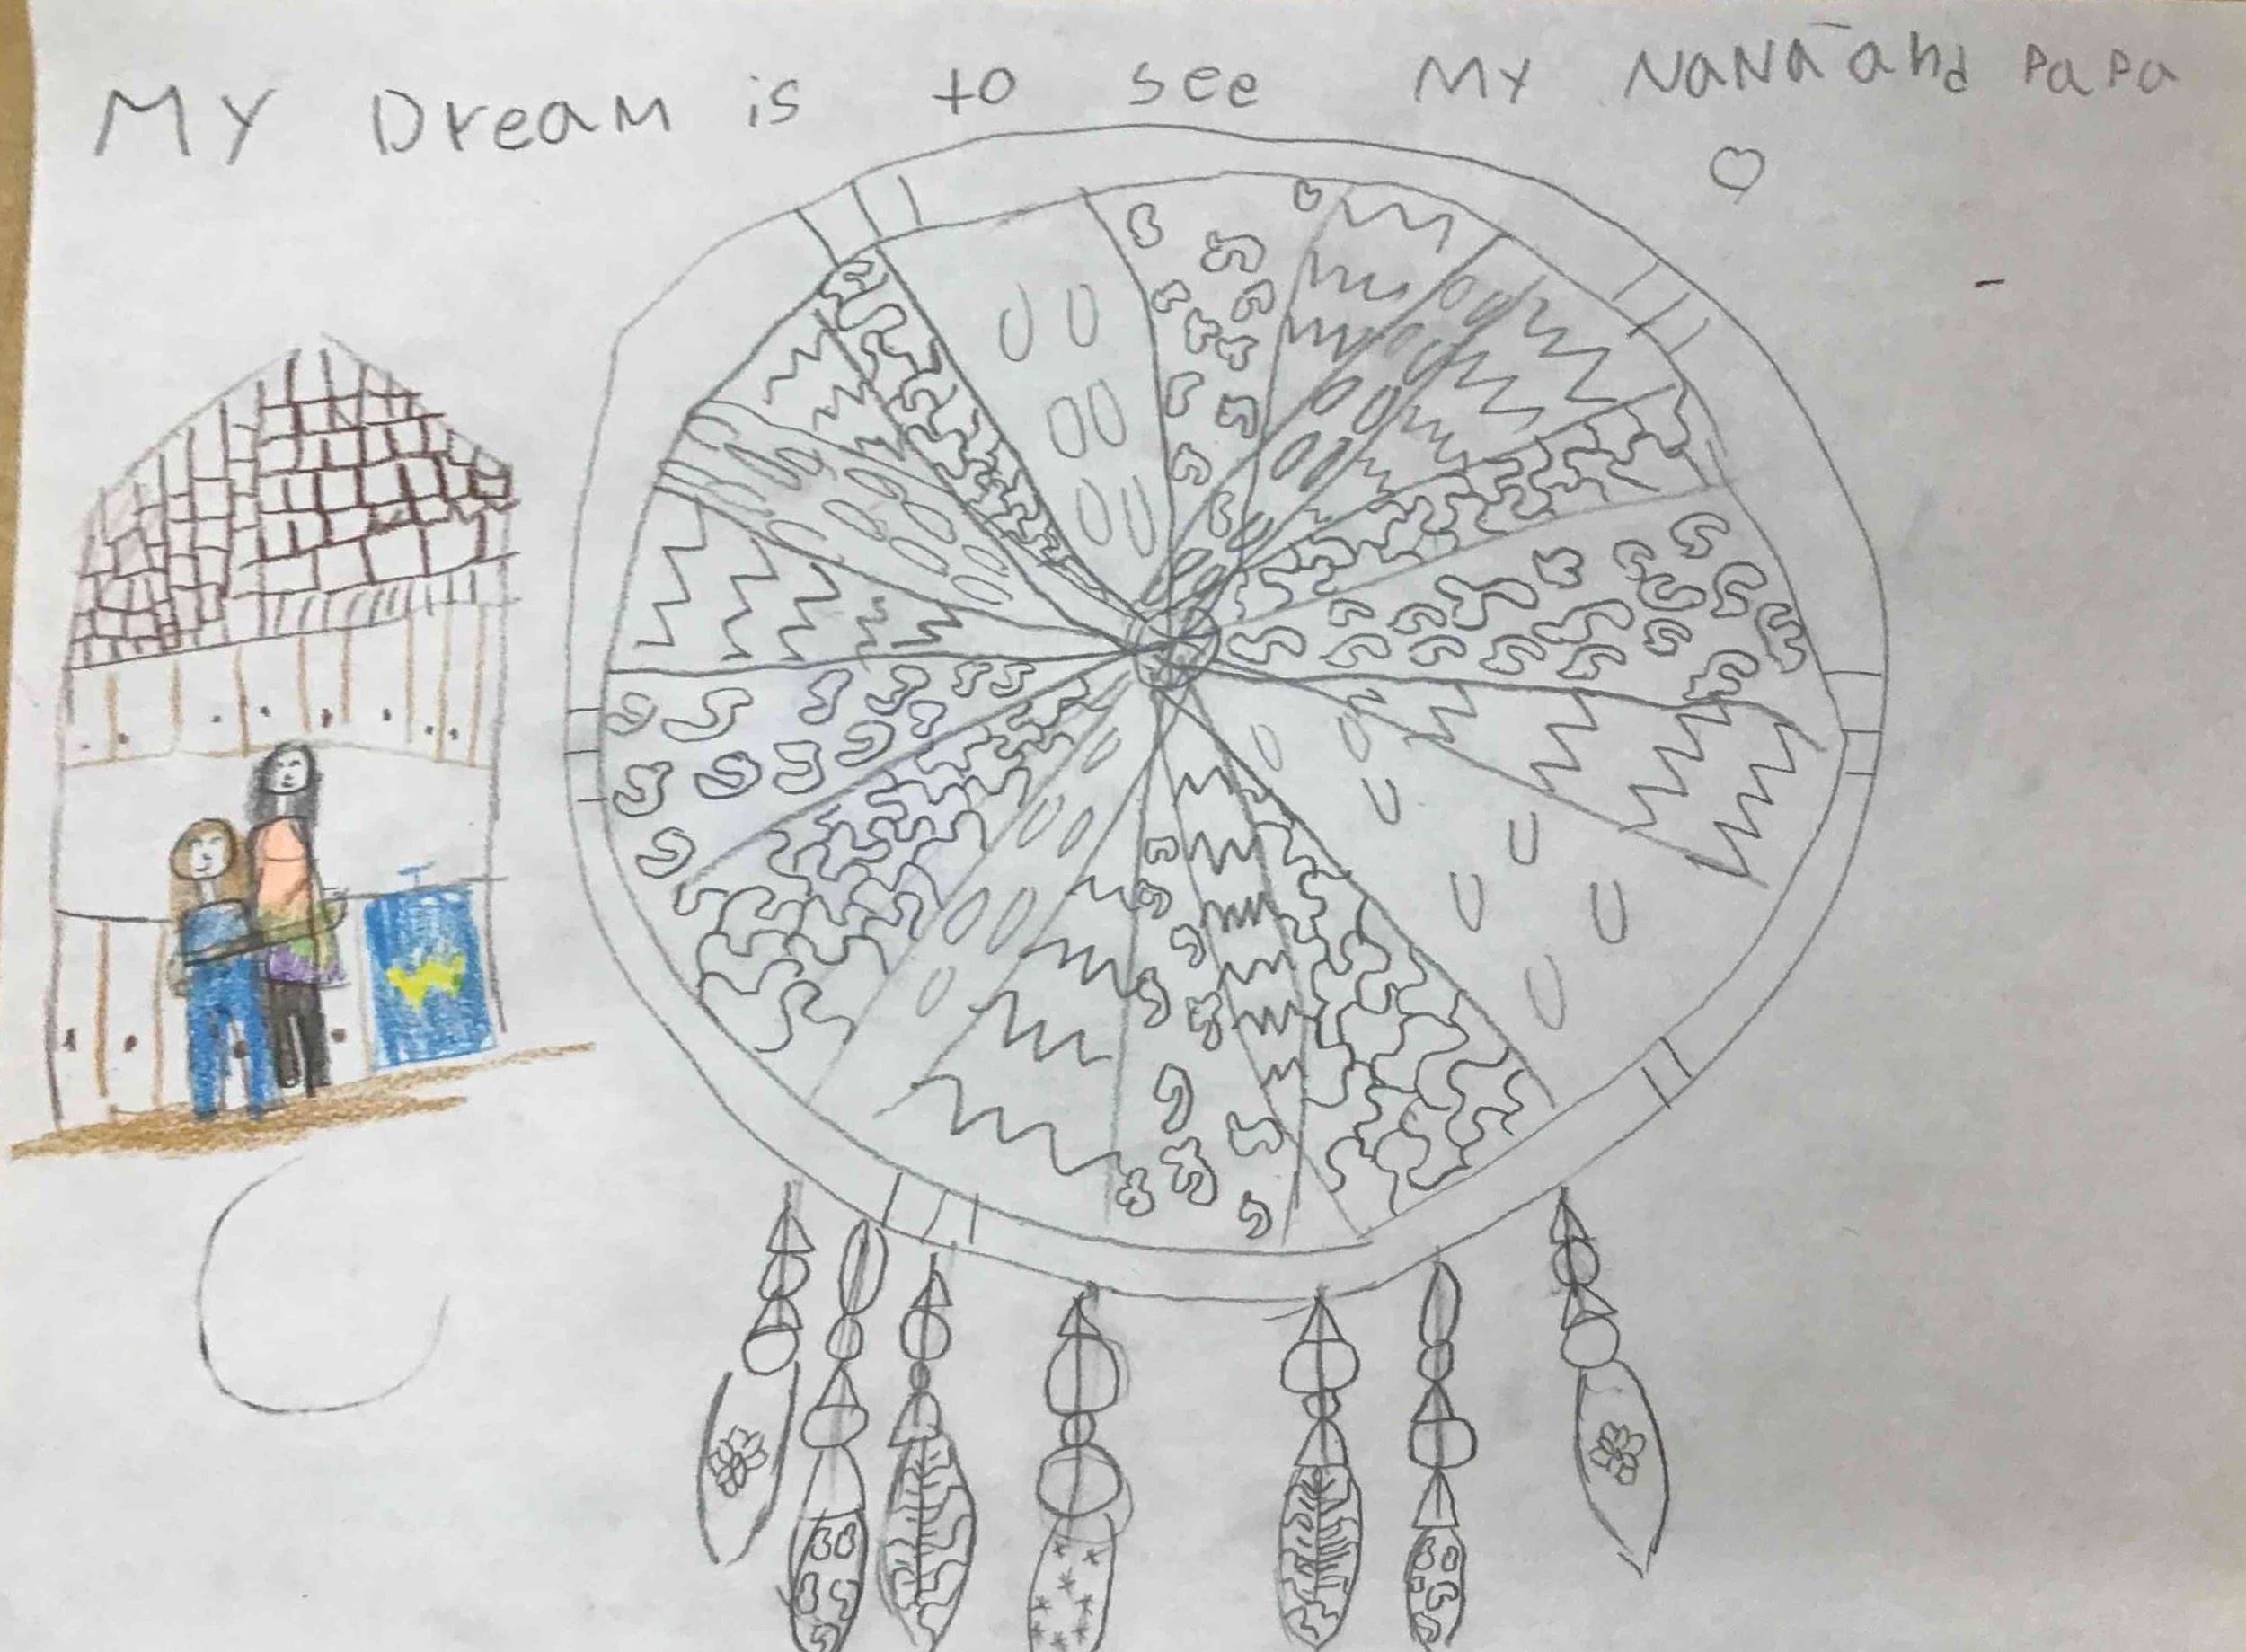 My Dream is to see My NaNa and PaPa